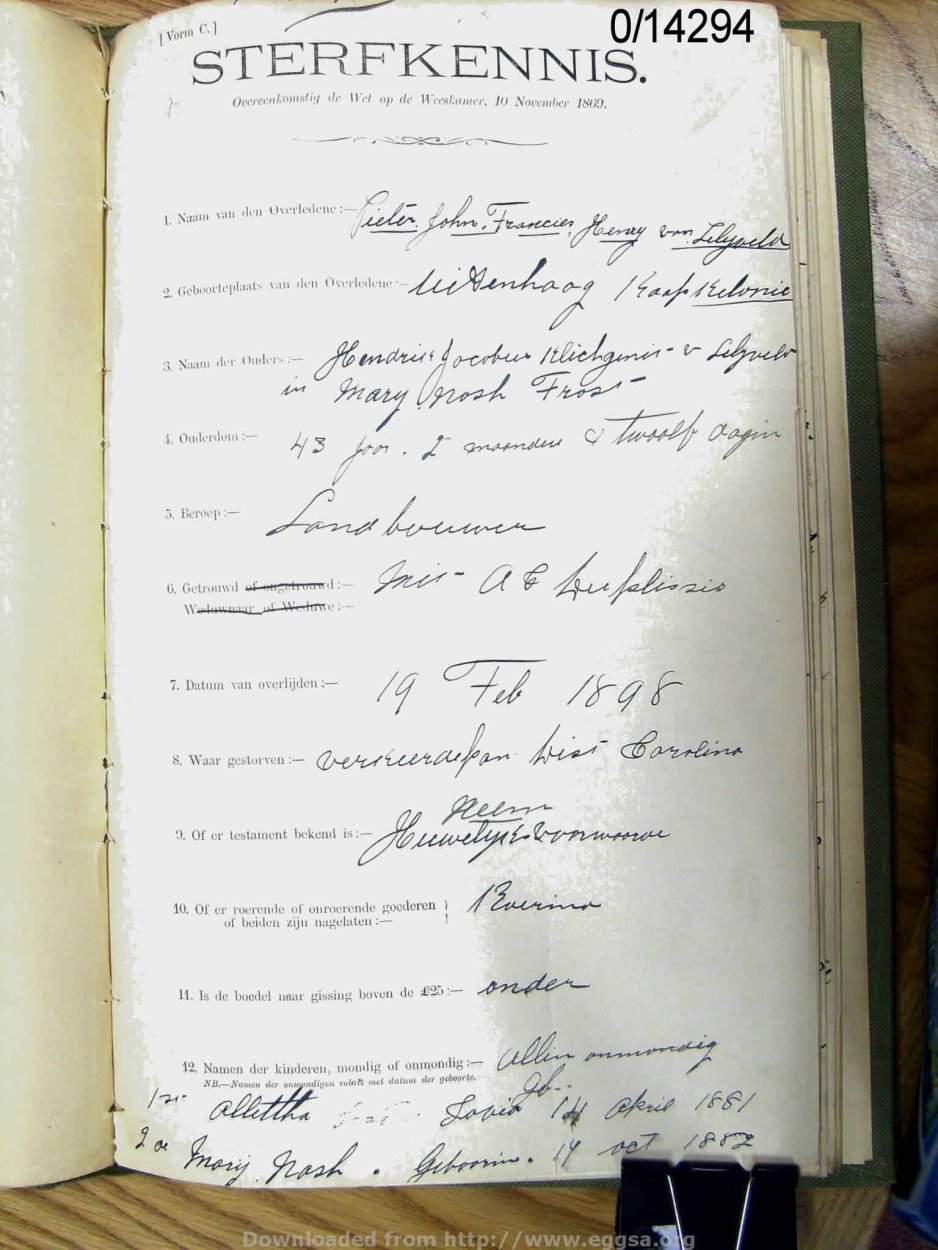 0/14294
[Vorm C.]
STERFKENNIS.
Overeenkomstig de Wet op de Weeskamer, 10 November 1869.
1. Naam van den Overledene:— Pieter John Francies Henry van Lelyveld
2. Geboorteplaats van den Overledene— Uitenhaag Kaap Kelonie
3. Naam der Ouders:— Hendrik Jacobus v Lelyveld
in Mary Nash Frost
4. Ouderdom:— 43 Jaar. 2 maanden & twaalf dagin
5. Beroep:— Landbouwer
6. Getrouwd of ongetrouwd:— Met A C Duplissis
Weduwnaar of Weduwe:—
7. Datum van overlijden:— 19 Feb 1898
8. Waar gestorven:— Verkeerdepan Dist Carolina
Neem
9. Of er testament bekend is:— Huwelyks voorwaarde
10. Of er roerende of onroerende goederen } Roerina
of beiden zijn nagelaten:—
11. Is de boedel naar gissing boven de £25:— onder
12. Namen der kinderen, mondig of onmondig:— Allin onmondig
NB.—Namen der onmondigen voluit met datum der geboorte.
Gb.
1ste Alettha Sovia 14 April 1881
2de Mary Nash. Geboorin. 14 oct 1882
Downloaded from http://www.eggsa.org